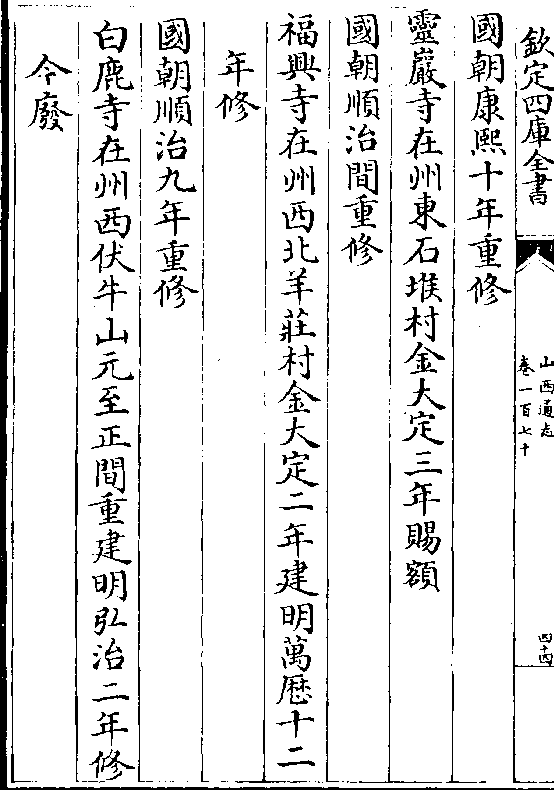 欽定四庫全書
山西通志
卷一百七十
四十四
國朝康熙十年重修
靈巖寺在州東石堆村金大定三年賜額
國朝順治間重修
福興寺在州西北羊莊村金大定二年建明萬厯十二
年修
國朝順治九年重修
白鹿寺在州西伏牛山元至正間重建明弘治二年修
今廢